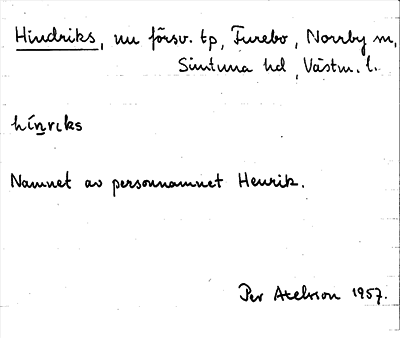 Hindriks, nu försv. tp, Furebo, Norrby sn,
Simtuna hd, Västm. l.
hínriks
Namnet av personnamnet Henrik.
Per Axelsson 1957.